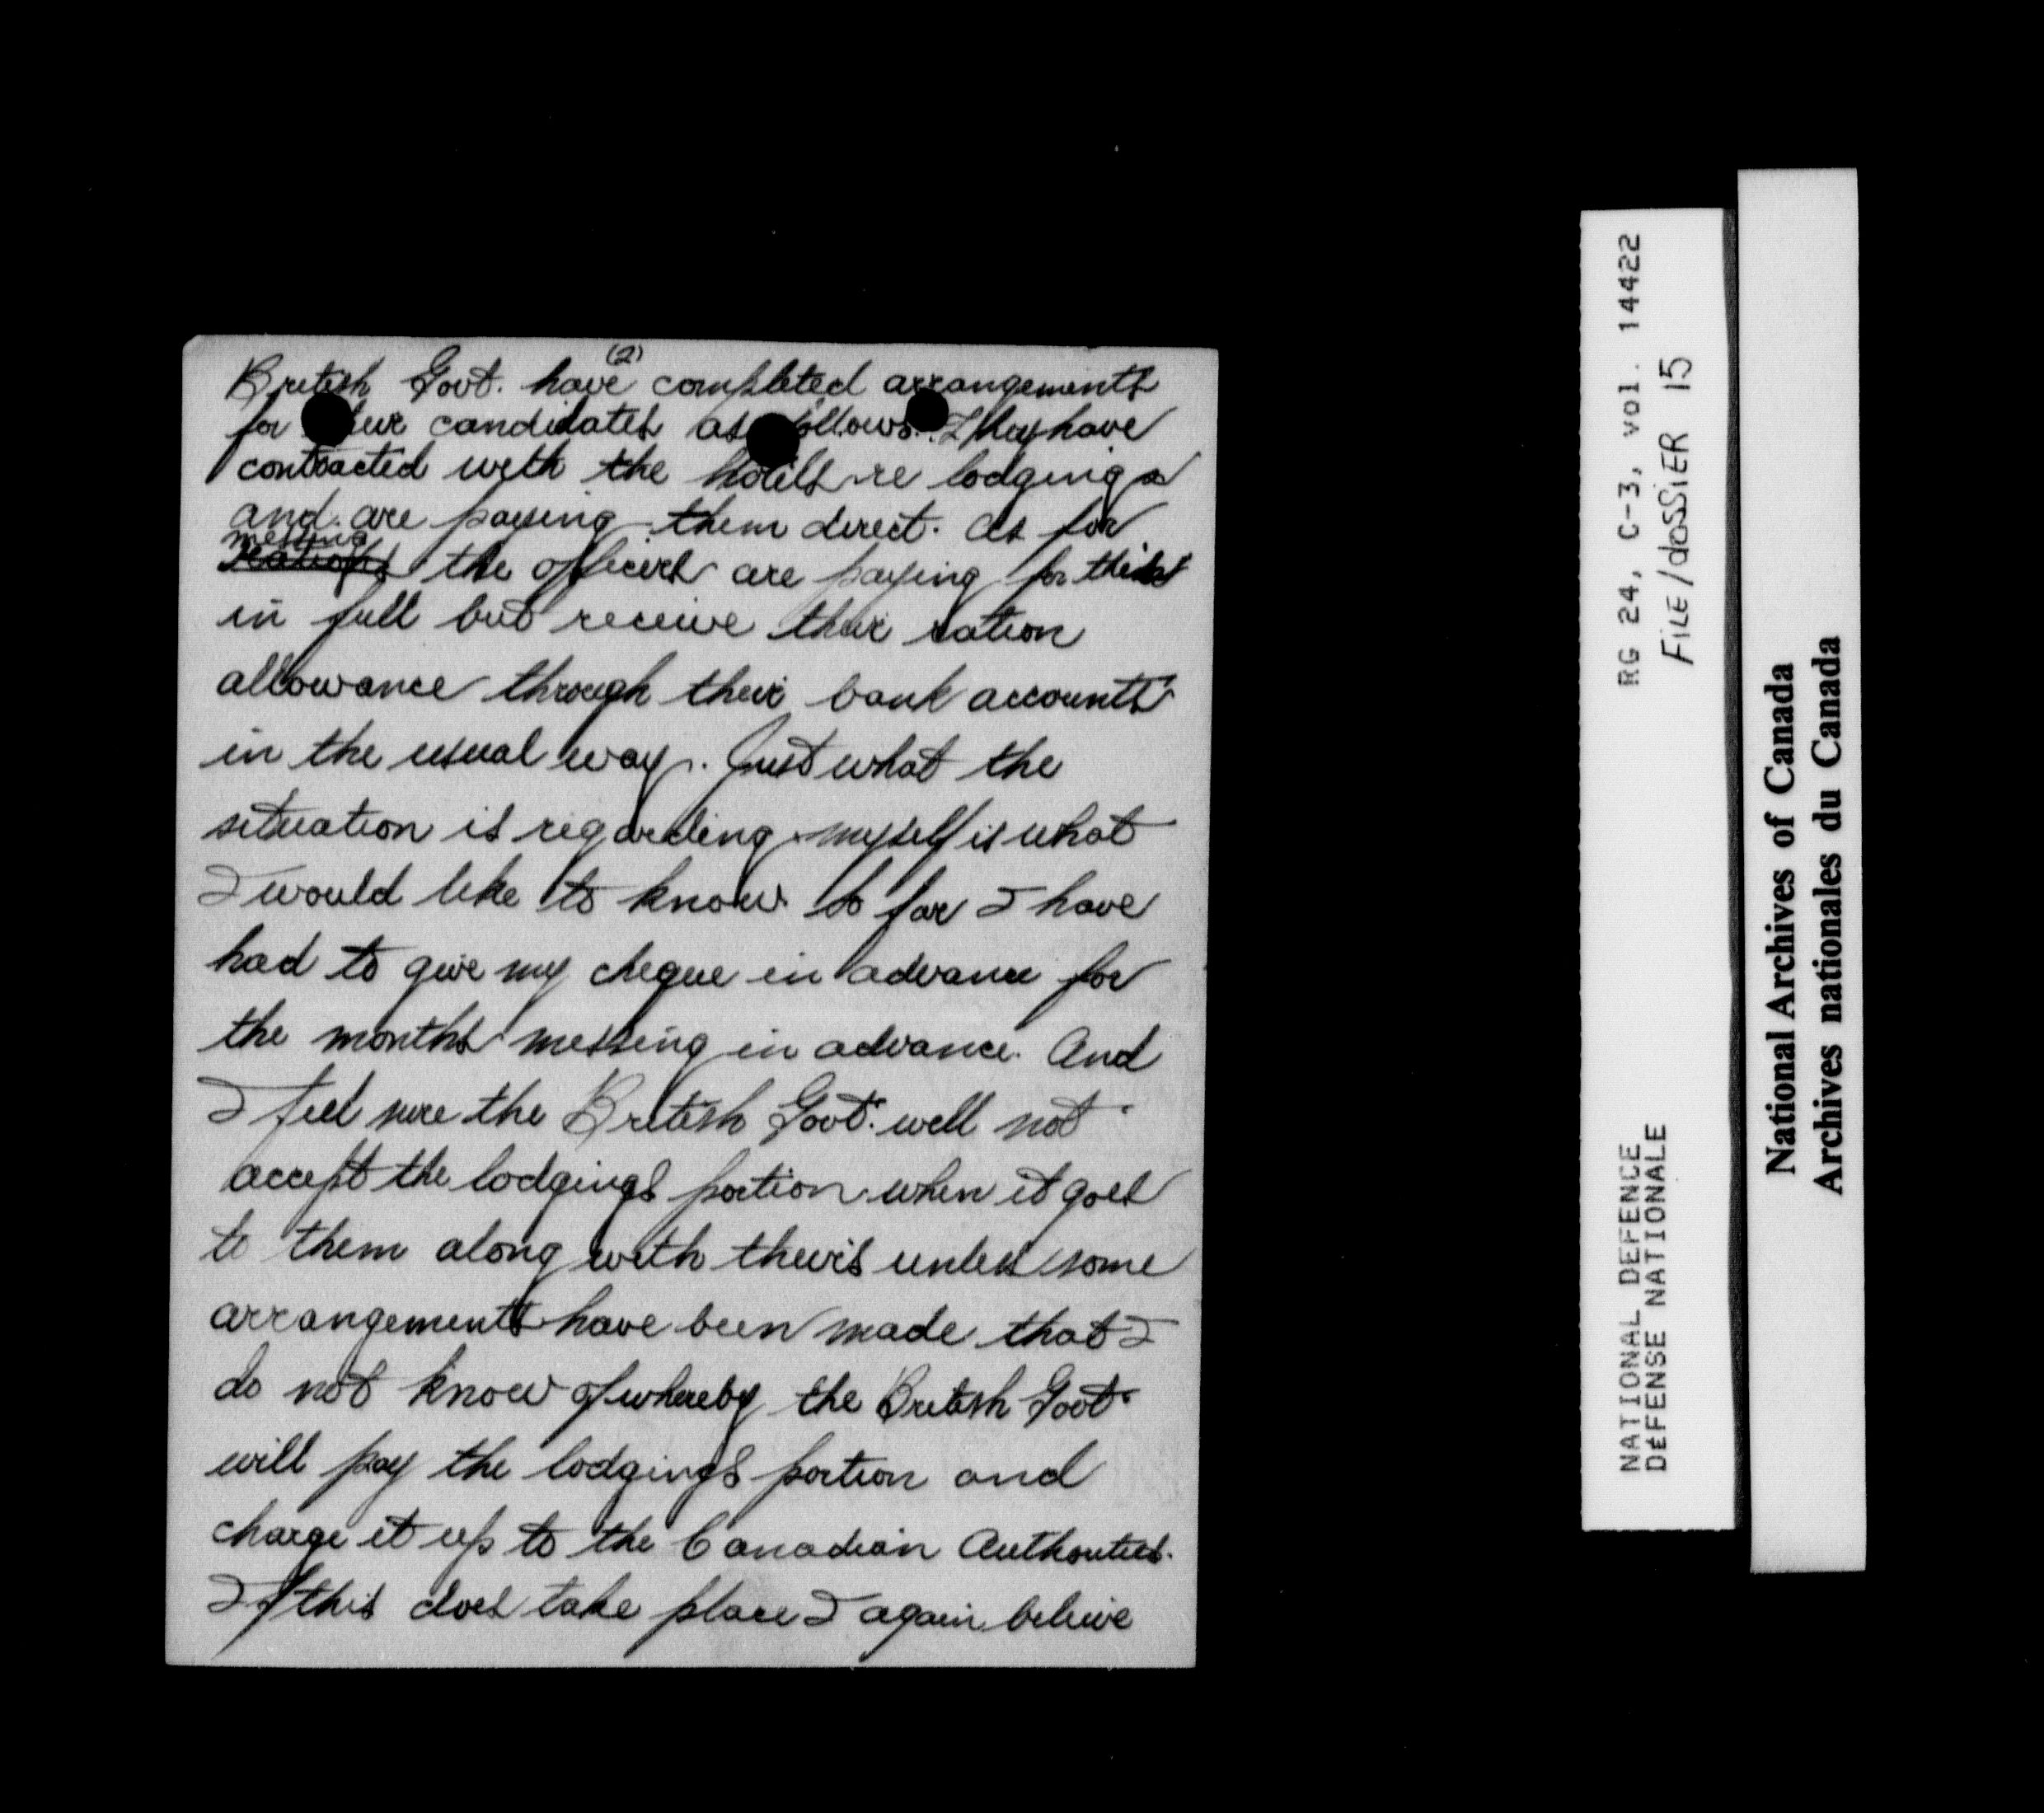 (2)
British Govt. have completed arrangements
for their candidates as follows. They have
contracted with the hotels re lodgings
and are paying them direct. As for
messing
rations the officers are paying for this
in full but receive their ration
allowance through their bank accounts
in the usual way. Just what the
situation is regarding myself is what
I would like to know. So far I have
had to give my cheque in advance for
the months messing in advance. And
I feel sure the British Govt. will not
accept the lodgings portion when it goes
to them along with theirs unless some
arrangements have been made that I
do not know of whereby the British Govt.
will pay the lodgings portion and
charge it up to the Canadian Authorities.
If this does take place I again believe
RG 24, C-3, vol. 14422
FILE/dOSSiER 15
NATIONAL DEFENCE
DÉFENSE NATIONALE
National Archives of Canada
Archives nationales du Canada